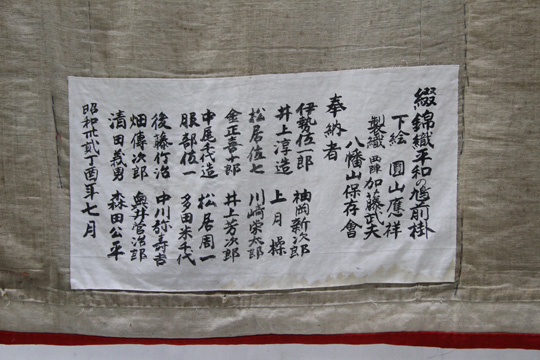 綴錦織平和の鳩前掛
下絵 圓山應祥
製織 四陣 加藤武夫
八幡山保存會
奉納者
伊勢伍一郎 柚岡新次郎
井上淳造 上月操
松居佐七 川崎栄太郎
金正喜十郎 井上芳次郎
中尾千代造 松居周一
服部佐一 多田米千代
後藤竹治 中川弥寿吉
畑傳次郎 奥井菅治郎
清田義男 森田公平
昭和卅貳丁酉年七月